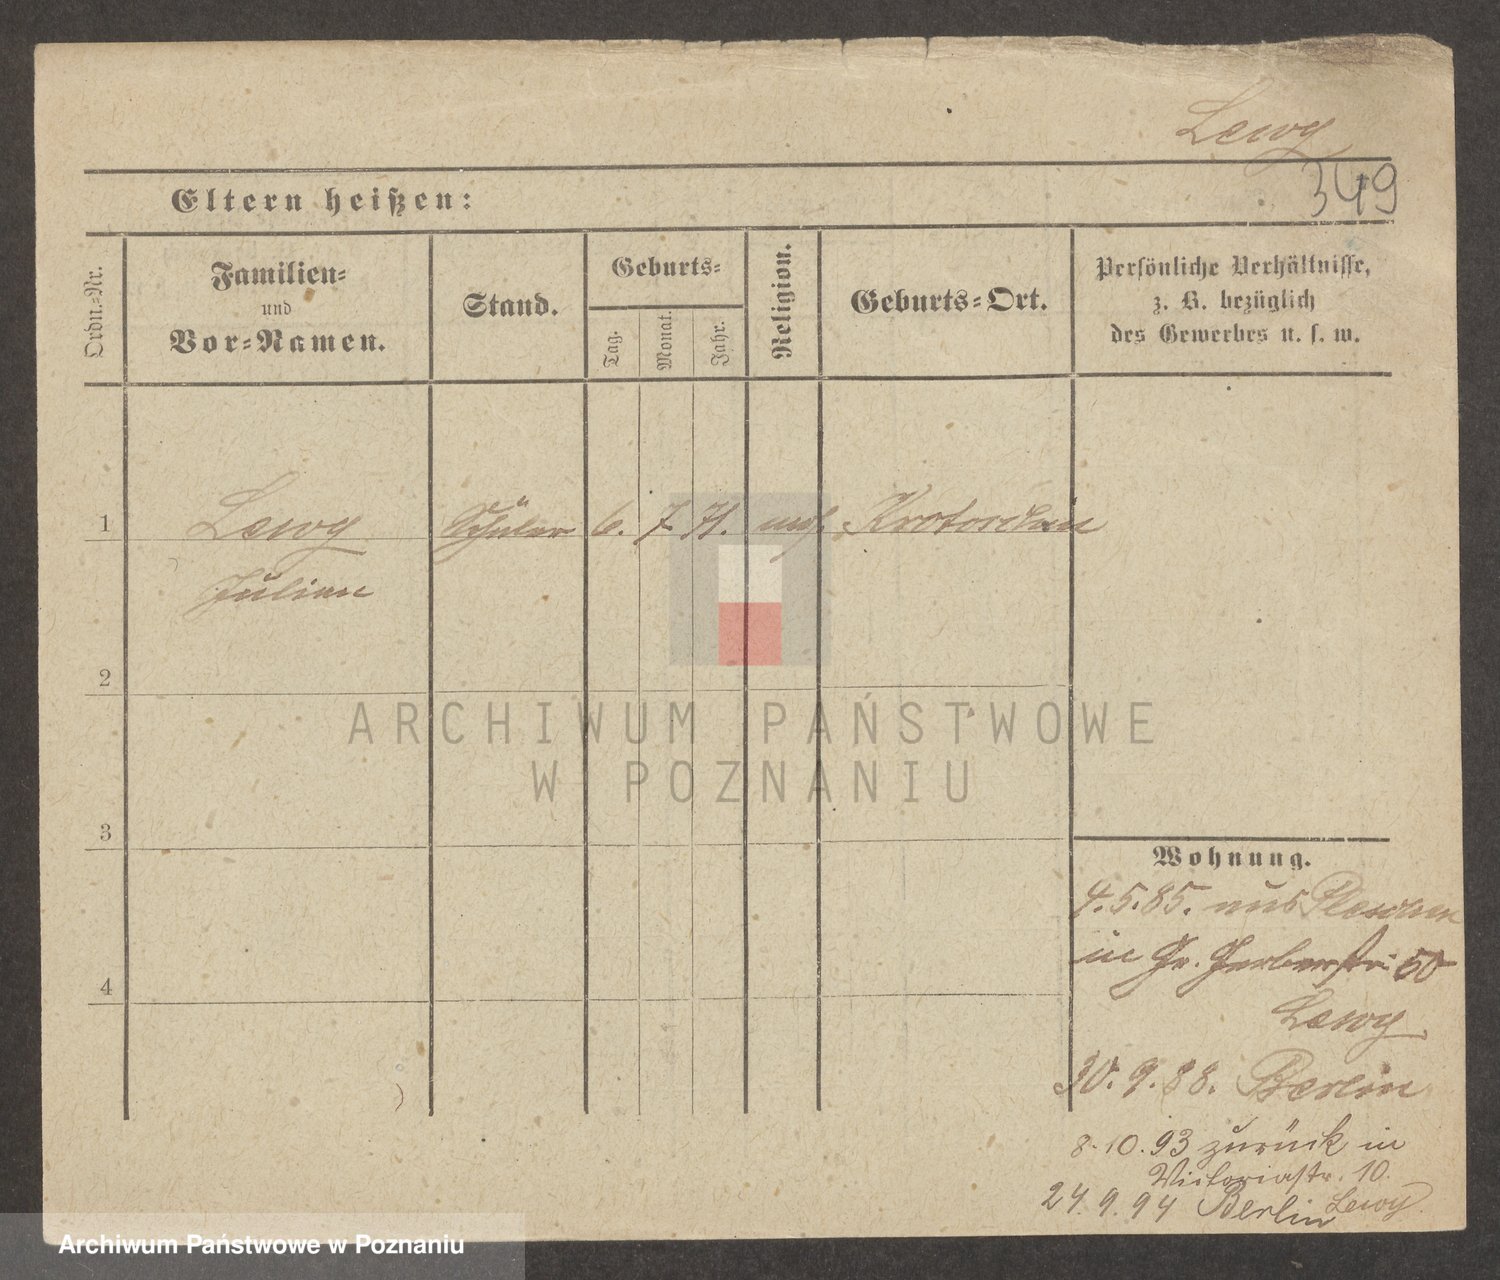 Lewy
349
Eltern heißen:
Ordn.-Nr.
Familien-
und
Vor-Namen.
Stand.
Geburts-
Tag.
Monat.
Jahr.
Religion.
Geburts-Ort.
Persönliche Verhältnisse,
z. B. bezüglich
des Gewerbes u. s. w.
1 Lewy Schüler 6. 7 71. mos. Krotoschin
Julian
2
3
4
Wohnung.
4.5.85. aus Pleschen
in Gr. Gerberstr. 50
Lewy
30.9.88. Berlin
8.10.93 zurück in
Victoriastr. 10.
Lewy
24.9.94 Berlin
ARCHIWUM PAŃSTWOWE
W POZNANIU
Archiwum Państwowe w Poznaniu